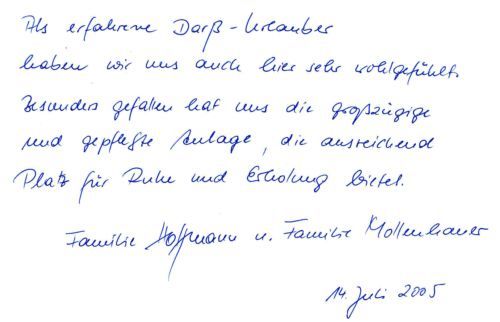 Als erfahrene Darß-Urlauber
haben wir uns auch hier sehr wohlgefühlt.
Besonders gefallen hat uns die großzügige
und gepflegte Anlage, die ausreichend
Platz für Ruhe und Erholung bietet.
Familie Hoffmann u. Familie Mollenhauer
14. Juli 2005